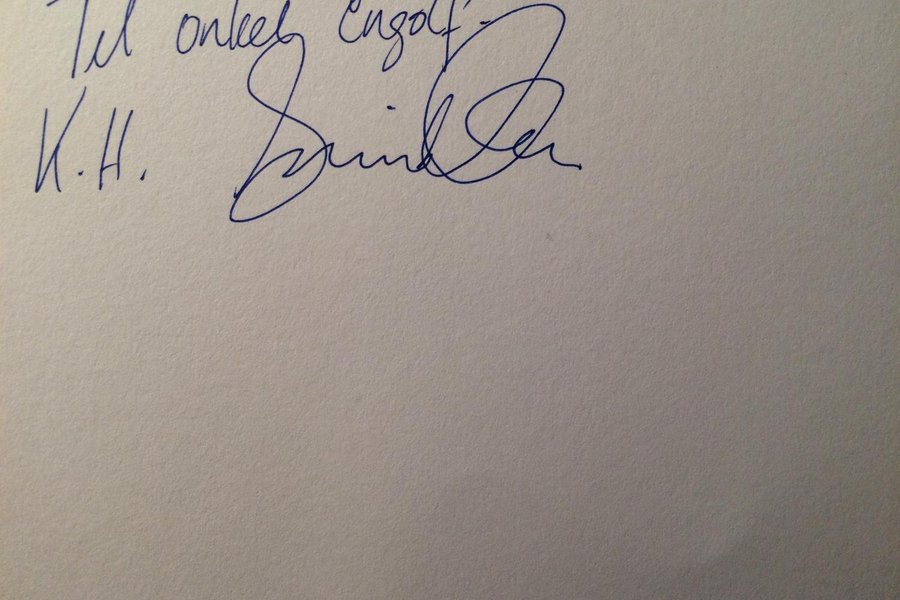 Til onkel Engolf.
K.H.